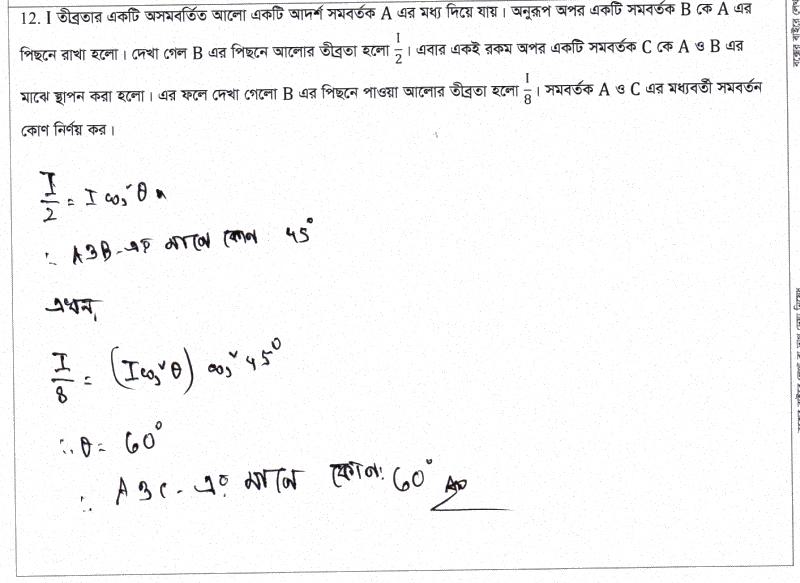 12. I তীব্রতার একটি অসমবর্তিত আলো একটি আদর্শ সমবর্তক A এর মধ্য দিয়ে যায়। অনুরূপ অপর একটি সমবর্তক B কে A এর
পিছনে রাখা হলো। দেখা গেল B এর পিছনে আলোর তীব্রতা হলো I/2। এবার একই রকম অপর একটি সমবর্তক C কে A ও B এর
মাঝে স্থাপন করা হলো। এর ফলে দেখা গেলো B এর পিছনে পাওয়া আলোর তীব্রতা হলো I/8। সমবর্তক A ও C এর মধ্যবর্তী সমবর্তন
কোণ নির্ণয় কর।
I/2 = I cos²θ
∴ A ও B-এর মাঝে কোন 45°
এখন,
I/8 = (I cos²θ) cos² 45°
∴ θ = 60°
∴ A ও C-এর মাঝে কোন: 60° Ans